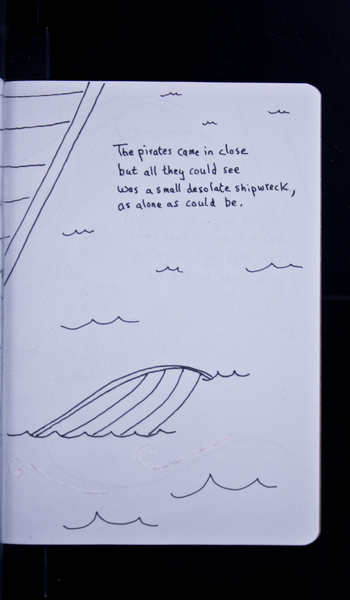 The pirates came in close
but all they could see
was a small desolate shipwreck,
as alone as could be.